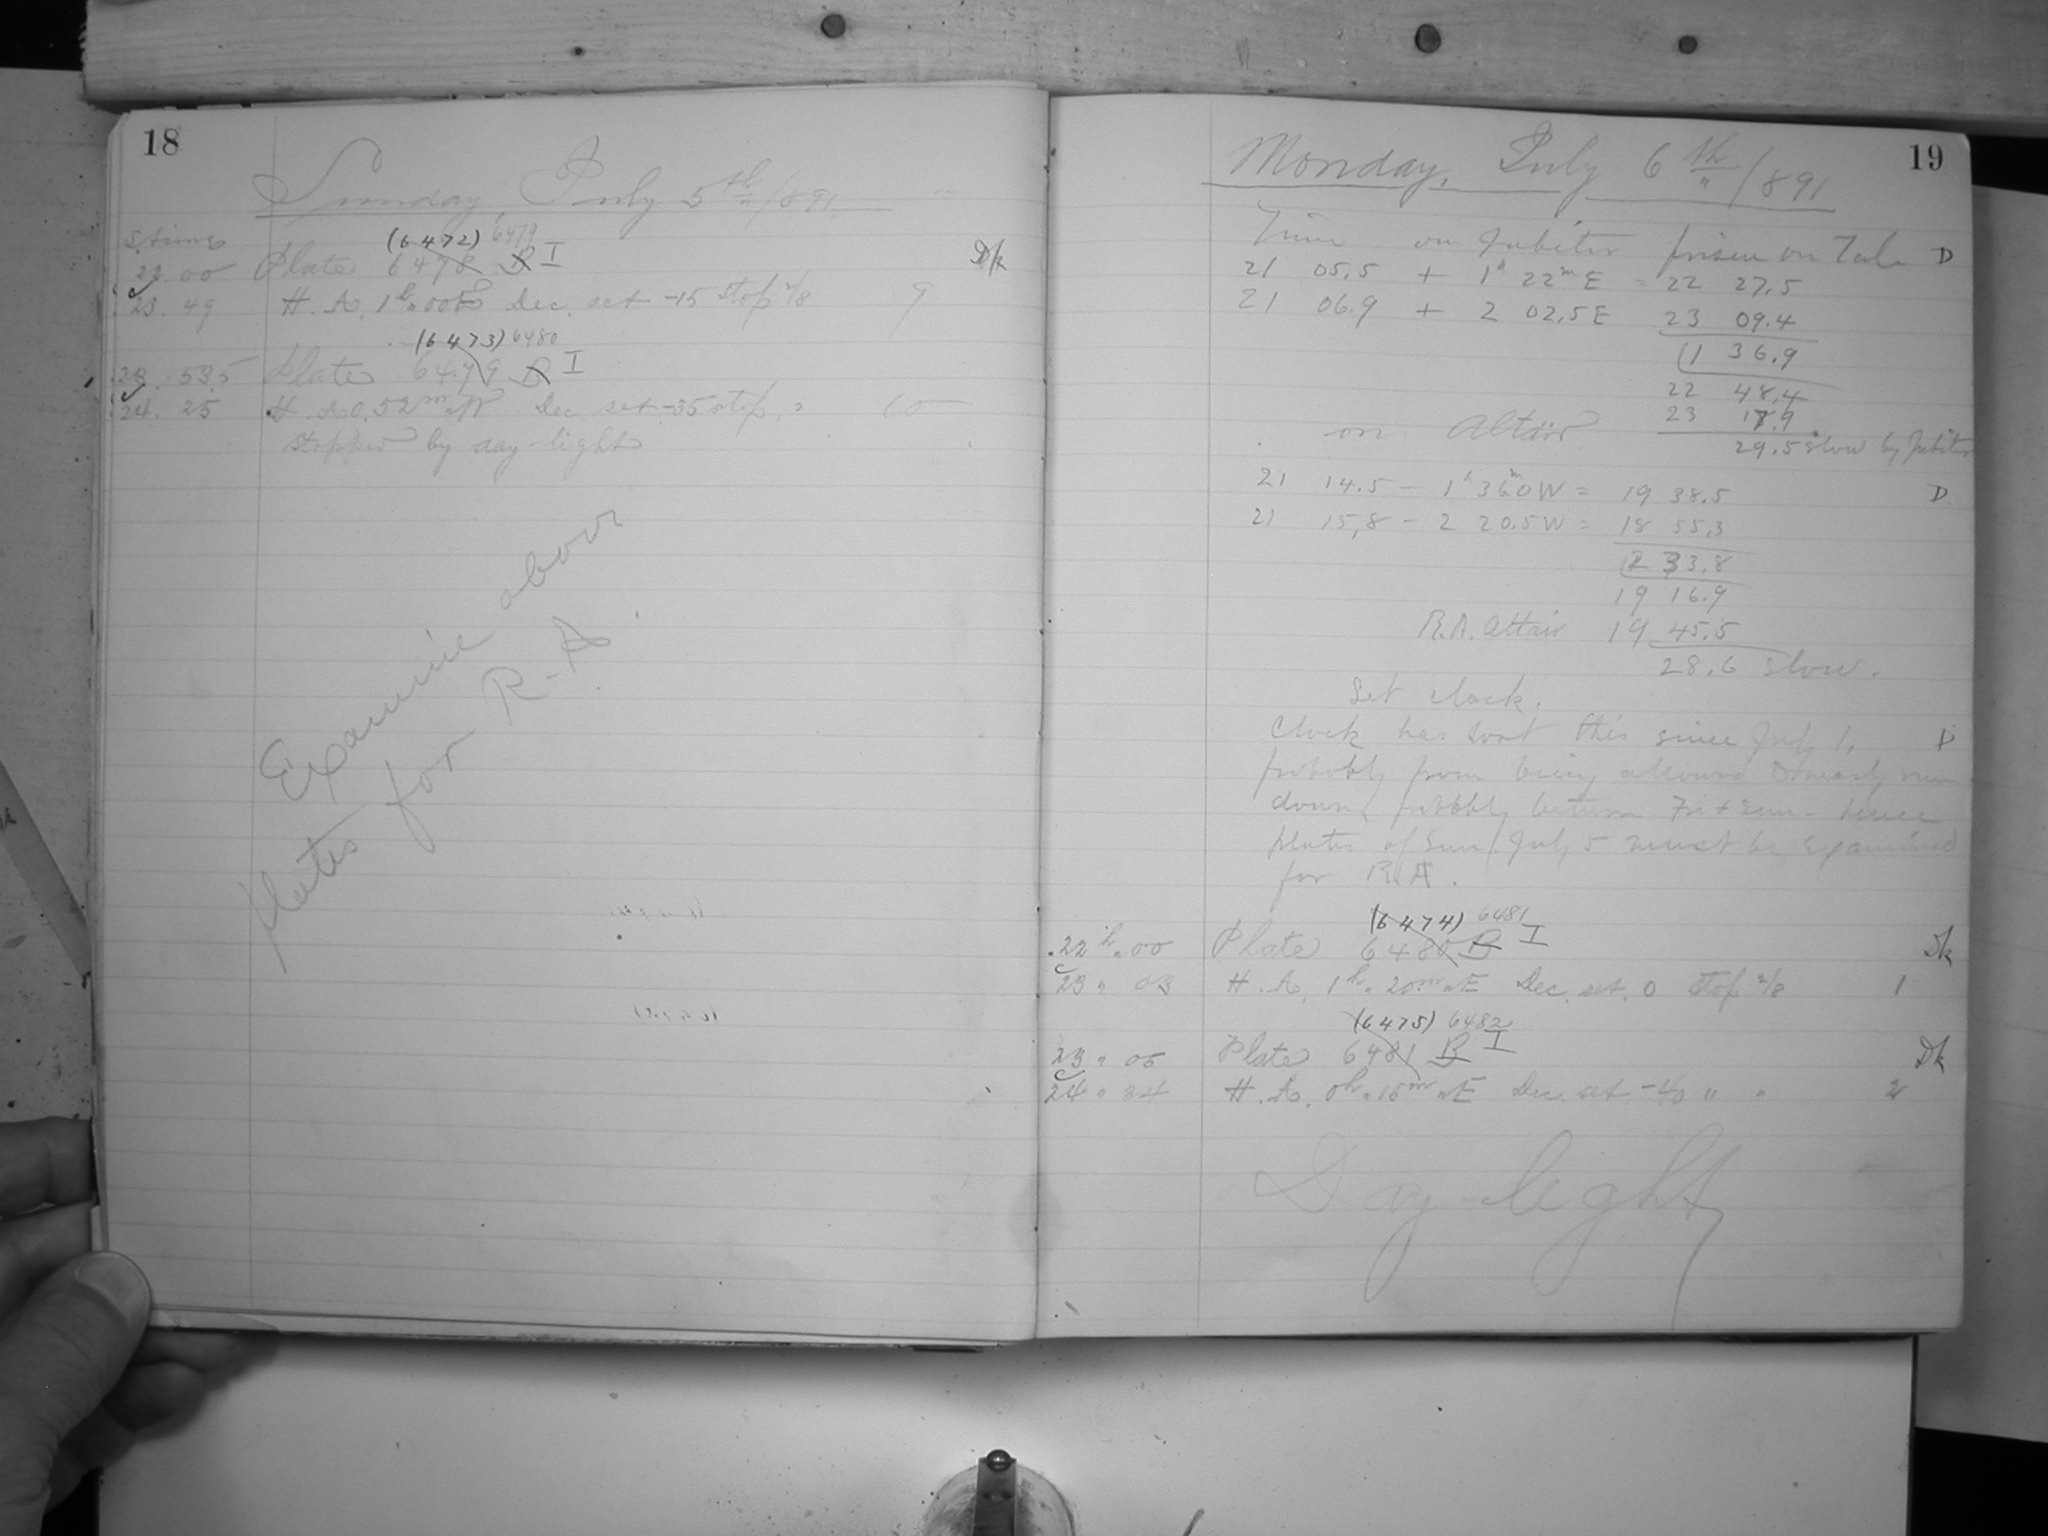 18
Sunday, July 5th /891
S. times (6472) 6479
22. 00 Plate 6478 B I Dk
23. 49 H. A. 1h. 00 E Dec. set -15 stop 2/8 9
(6473) 6480
23. 53.5 Plate 6479 B I
24. 25 H. A. 0. 52m W Dec. set -35 stop " 10
stopped by day light
Examine above
plates for R.A.
19
Monday, July 6th /891
Time on Jubiter prism on Tele D
21 05.5 + 1h 22m E = 22 27.5
21 06.9 + 2 02.5 E 23 09.4
1 36.9
22 48.4
23 17.9
on Altair 29.5 slow by Jubiter
21 14.5 - 1h 36.0m W = 19 38.5 D
21 15.8 - 2 20.5 W = 18 55.3
2 33.8
19 16.9
R.A. Altair 19 45.5
28.6 slow.
Set clock.
Clock has lost this since July 1, D
probably from being allowed to nearly run
down, probably between Fri + Sun - hence
plates of Sun July 5 must be examined
for R.A.
(6474) 6481
22h. 00 Plate 6480 B I Dk
23 " 03 H. A. 1h. 20m. E Dec. set. 0 stop 2/8 1
(6475) 6482
23 " 05 Plate 6481 B I Dk
24 " 34 H. A. 0h. 15m. E Dec. set -40 " " 2
Day-light